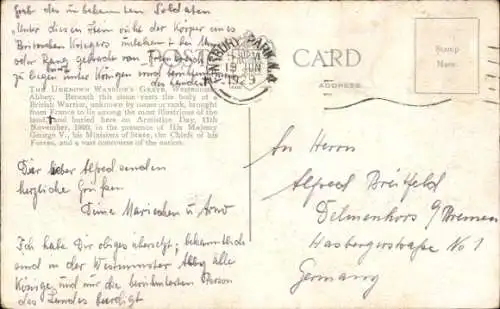 Grab des unbekannten Soldaten
"Unter diesem Stein ruht der Körper eines
Britischen Kriegers unbekannt bei
oder Rang gebracht von Frankreich
zu liegen unter Königen und berühmten
des Landes
THE UNKNOWN WARRIOR'S GRAVE, Westminster
Abbey. Beneath this stone rests the body of a
British Warrior, unknown by name or rank, brought
from France to lie among the most illustrious of the
land, and buried here on Armistice Day, 11th
November, 1920, in the presence of His Majesty
George V., his Ministers of State, the Chiefs of his
Forces, and a vast concourse of the nation.
Dir lieber Alfred senden
herzliche Grüßen
Deine Mariechen u Arno
Ich habe Dir obiges übersetzt; bekanntlich
sind in der Westminster Abby alle
Könige und nur die berühmtesten Person
des Landes beerdigt
FINSBURY PARK. N.4.
19 JUN
1929
CARD
ADDRESS
Stamp
Here
An Herrn
Alfred Breitfeld
Delmenhors b/Bremen
Hasbergerstraße No 1
Germany